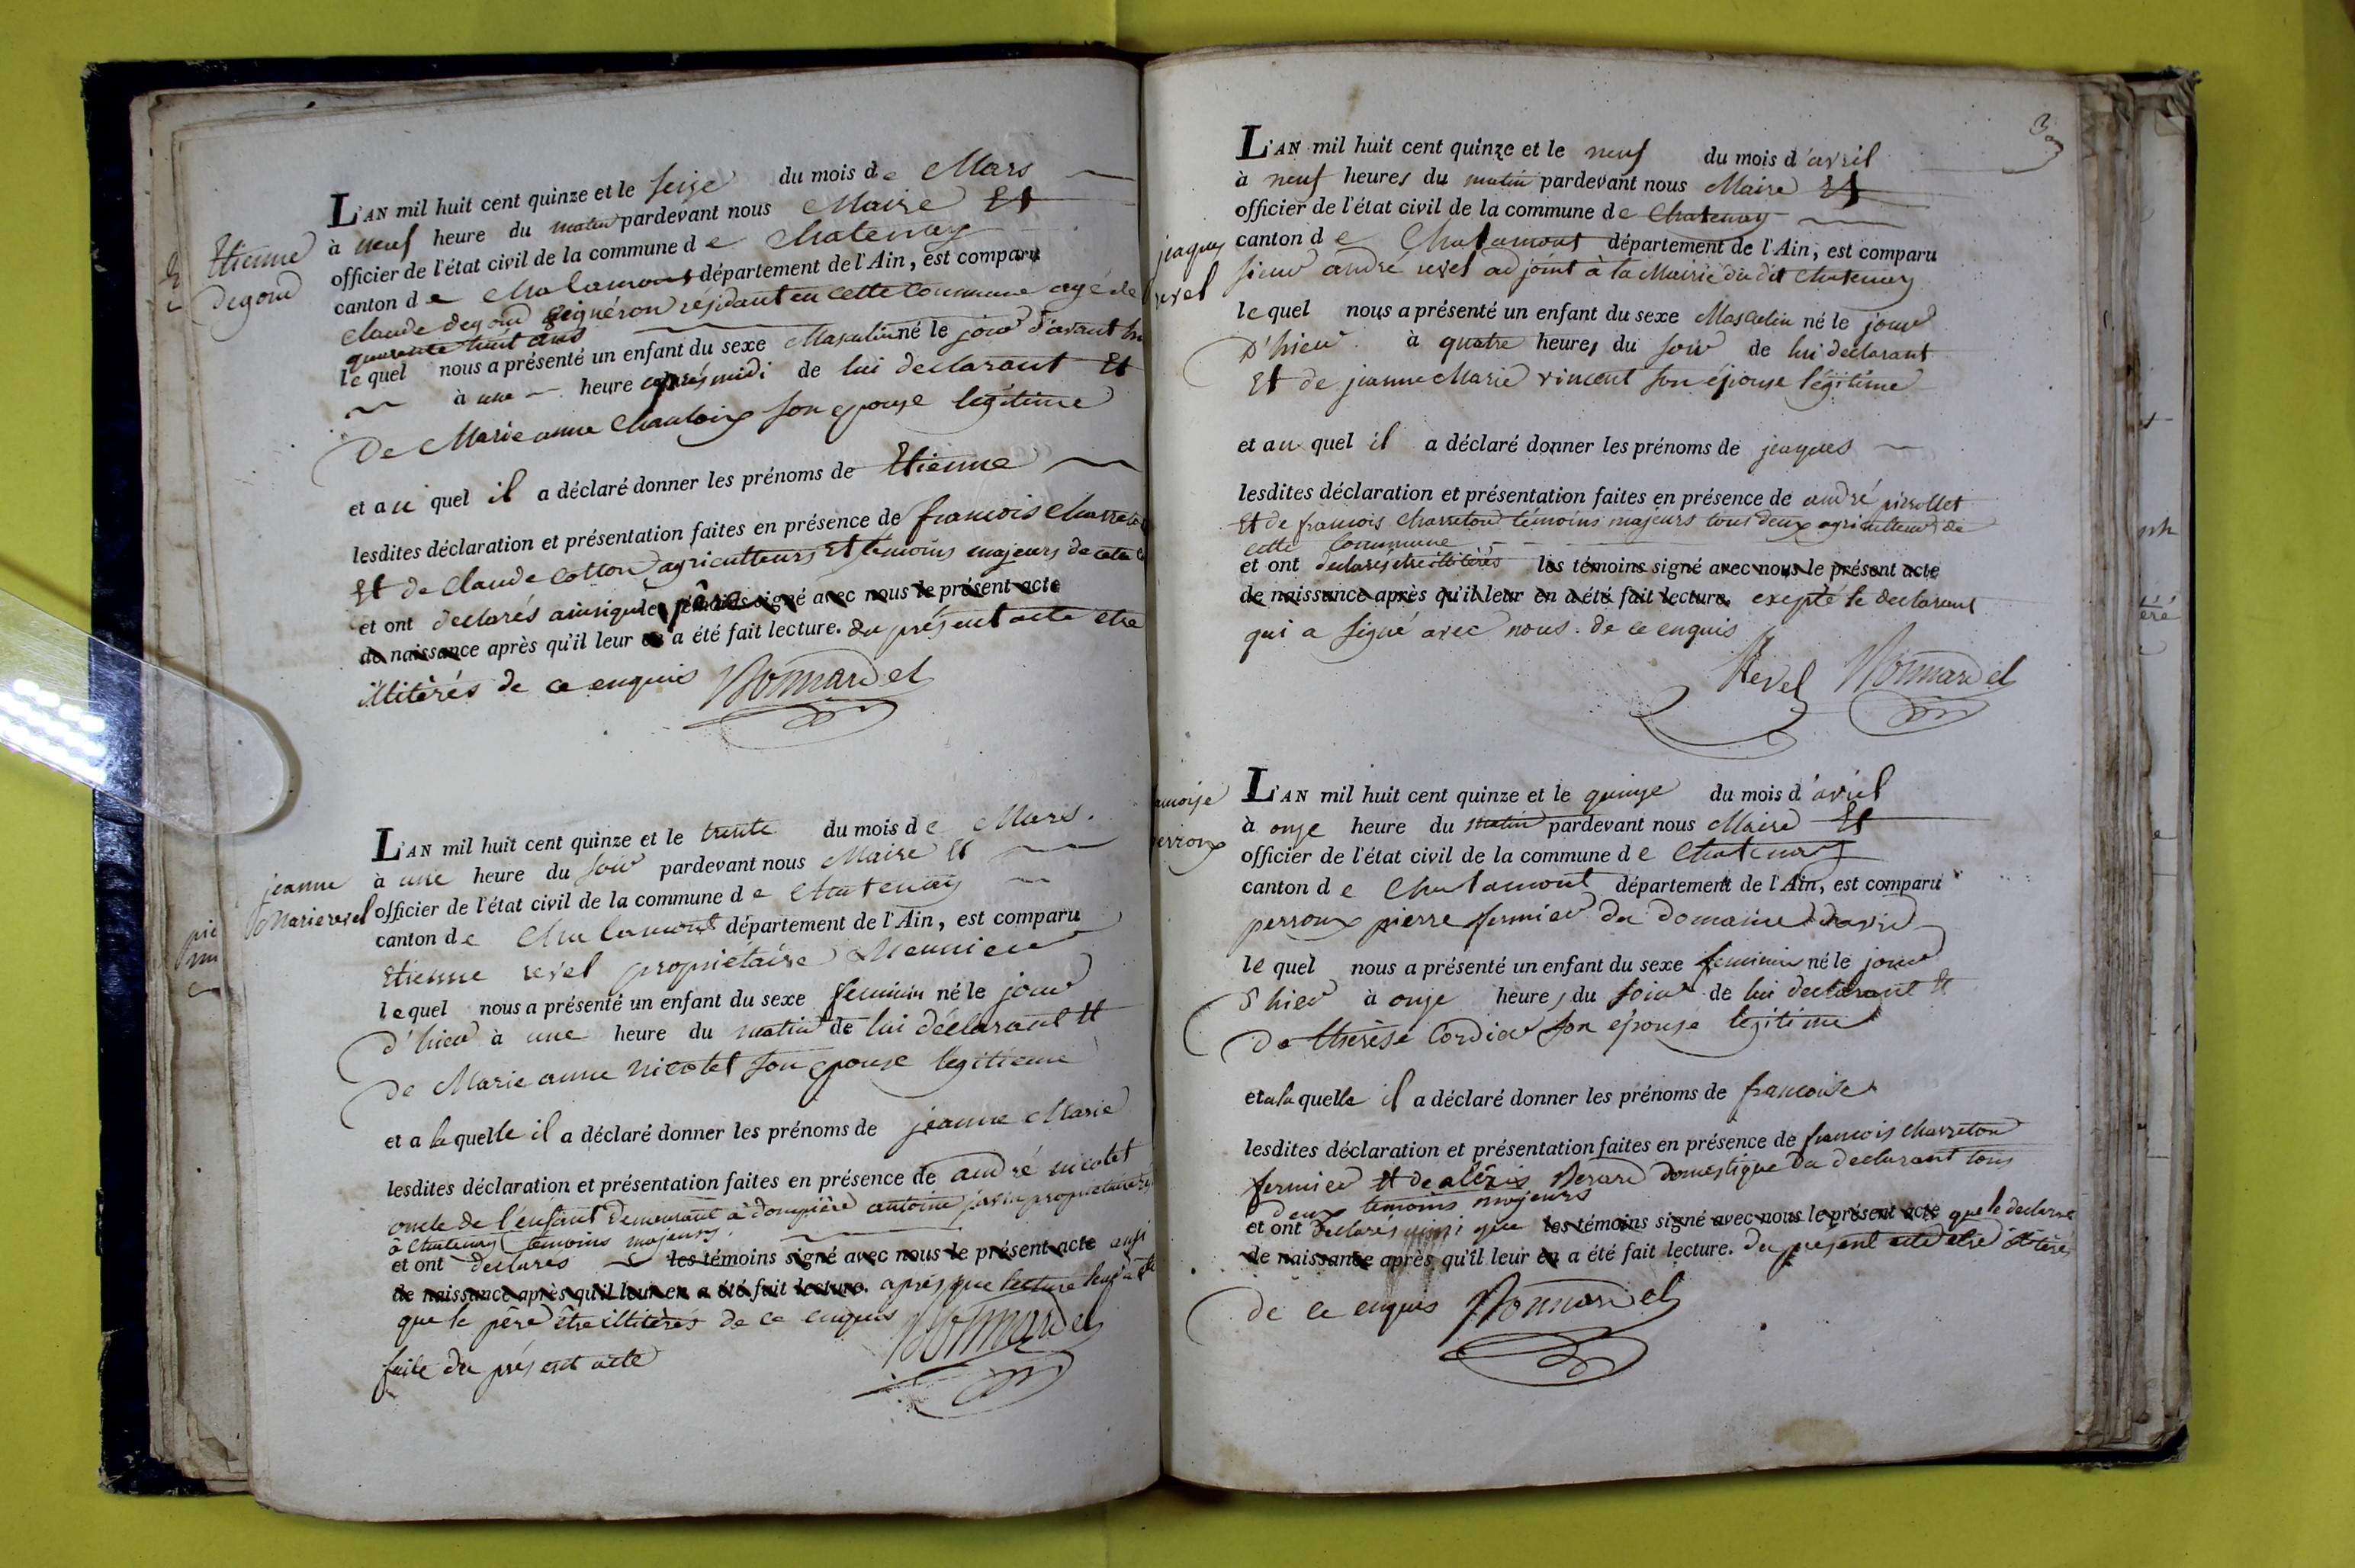 Etienne
degoud
L'AN mil huit cent quinze et le seize du mois de Mars
à neuf heure du matin pardevant nous Maire Et
officier de l'état civil de la commune de Chatenay
canton de Chalamont, département de l'Ain, est comparu
Claude degoud vigneron residant en cette Commune agé de
quarante huit ans
lequel nous a présenté un enfant du sexe Masculin né le jour d'avant
à une heure après midi de lui declarant Et
De Marie anne son epouse legitime
et au quel il a déclaré donner les prénoms de Etienne
lesdites déclaration et présentation faites en présence de francois
Et de Claude Cotton agriculteurs Et temoins majeurs de cette
et ont declarés ainsi que le père témoins signé avec nous le présent acte
de naissance après qu'il leur en a été fait lecture. du présent acte etre
illitèrés de ce enquis Bonnardel
jeanne
Marie revel
L'AN mil huit cent quinze et le trente du mois de Mars.
à une heure du soir pardevant nous Maire Et
officier de l'état civil de la commune de Chatenay
canton de Chalamont département de l'Ain, est comparu
Etienne revel propriétaire Meunier
lequel nous a présenté un enfant du sexe feminin né le jour
d'hier à une heure du matin de lui déclarant Et
de Marie anne nicolet son epouse legitieme
et a laquelle il a déclaré donner les prénoms de jeanne Marie
lesdites déclaration et présentation faites en présence de andré nicolet
oncle de l'enfant Demeurant à dompière antoine
à Chatenay temoins majeurs.
et ont declarés les témoins signé avec nous le présent acte ausi
de naissance après qu'il leur en a été fait lecture. après que lecture leur a été
que le père être illitèrés de ce enquis Bonnardel
faite du présent acte
3
jeaques
revel
L'AN mil huit cent quinze et le neuf du mois d'avril
à neuf heures du matin pardevant nous Maire Et
officier de l'état civil de la commune de Chatenay
canton de Chalamont département de l'Ain, est comparu
sieur andré revel adjoint à la Mairie du dit Chatenay
lequel nous a présenté un enfant du sexe Masculin né le jour
D'hier à quatre heures du soir de lui declarant
Et de jeanne Marie vincent son épouse légitime
et au quel il a déclaré donner les prénoms de jeaques
lesdites déclaration et présentation faites en présence de andré pirollet
Et de francois Charreton témoins majeurs tous deux agriculteurs de
cette Commune
et ont declarés être illitèrés les témoins signé avec nous le présent acte
de naissance après qu'il leur en a été fait lecture. exepté le declarant
qui a signé avec nous. de ce enquis
Revel Bonnardel
L'AN mil huit cent quinze et le quinze du mois d'avril
à onze heure du matin pardevant nous Maire Et
officier de l'état civil de la commune de Chatenay
canton de Chalamont département de l'Ain, est comparu
perroux pierre fermier du domaine
lequel nous a présenté un enfant du sexe feminin né le jour
d'hier à onze heures du soir de lui declarant Et
De therèse Cordier son épouse legitime
et a la quelle il a déclaré donner les prénoms de francoise
lesdites déclaration et présentation faites en présence de francois Charreton
fermier Et de alexis Berard domestique du declarant tous
deux temoins majeurs
et ont declarés ainsi que les témoins signé avec nous le présent acte que le declarant
de naissance après qu'il leur en a été fait lecture. du present acte etre illitèrés
de ce enquis Bonnardel